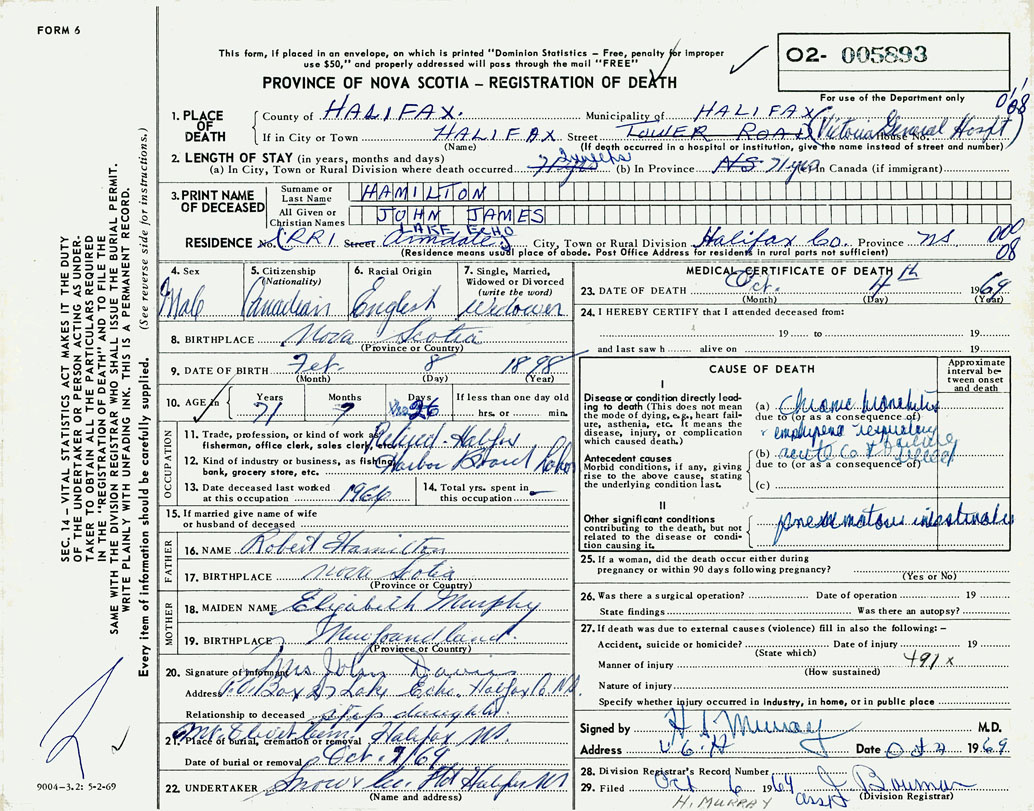 FORM 6
This form, if placed in an envelope, on which is printed "Dominion Statistics – Free, penalty for improper
use $50," and properly addressed will pass through the mail "FREE"
PROVINCE OF NOVA SCOTIA – REGISTRATION OF DEATH
02- 005893
For use of the Department only
1. PLACE OF DEATH
County of HALIFAX. Municipality of HALIFAX
If in City or Town HALIFAX. Street TOWER ROAD (Victoria General Hospt) House No.
(Name) (If death occurred in a hospital or institution, give the name instead of street and number)
2. LENGTH OF STAY (in years, months and days)
(a) In City, Town or Rural Division where death occurred (b) In Province NS 71 yrs In Canada (if immigrant)
3. PRINT NAME OF DECEASED
Surname or Last Name HAMILTON
All Given or Christian Names JOHN JAMES
LAKE ECHO
RESIDENCE No. (RR1 Street Armdale) City, Town or Rural Division Halifax Co. Province NS
000
08
(Residence means usual place of abode. Post Office Address for residents in rural parts not sufficient)
4. Sex Male
5. Citizenship (Nationality) Canadian
6. Racial Origin English
7. Single, Married, Widowed or Divorced (write the word) widower
8. BIRTHPLACE Nova Scotia
(Province or Country)
9. DATE OF BIRTH Feb. 8 1898
(Month) (Day) (Year)
10. AGE in Years 71 Months 7 Days 26 If less than one day old
hrs. or min.
OCCUPATION
11. Trade, profession, or kind of work as fisherman, office clerk, sales clerk, etc. Retired - Halifax
12. Kind of industry or business, as fishing, bank, grocery store, etc. Harbor Board
13. Date deceased last worked at this occupation 1964
14. Total yrs. spent in this occupation –
15. If married give name of wife or husband of deceased
FATHER
16. NAME Robert Hamilton
17. BIRTHPLACE Nova Scotia
(Province or Country)
MOTHER
18. MAIDEN NAME Elizabeth Murphy
19. BIRTHPLACE Newfoundland.
(Province or Country)
20. Signature of Informant Mrs. John Davis
Address P.O. Box Lake Echo, Halifax Co. N.S.
Relationship to deceased step daughter.
21. Place of burial, cremation or removal Mt. Olivet Cem. Halifax NS.
Date of burial or removal Oct. 7/69
22. UNDERTAKER Snow & Co. Ltd Halifax NS
(Name and address)
MEDICAL CERTIFICATE OF DEATH
23. DATE OF DEATH Oct. 4th 1969
(Month) (Day) (Year)
24. I HEREBY CERTIFY that I attended deceased from:
19 to 19
and last saw h alive on 19
CAUSE OF DEATH
Approximate interval between onset and death
I
Disease or condition directly leading to death (This does not mean the mode of dying, e.g., heart failure, asthenia, etc. It means the disease, injury, or complication which caused death.)
(a) Chronic bronchitis
due to (or as a consequence of)
emphysema respiratory
Antecedent causes
Morbid conditions, if any, giving rise to the above cause, stating the underlying condition last.
(b) acute failure
due to (or as a consequence of)
(c)
II
Other significant conditions
contributing to the death, but not related to the disease or condition causing it.
pneumatosis intestinalis
25. If a woman, did the death occur either during pregnancy or within 90 days following pregnancy?
(Yes or No)
26. Was there a surgical operation? Date of operation 19
State findings Was there an autopsy?
27. If death was due to external causes (violence) fill in also the following: –
Accident, suicide or homicide? Date of injury 19
(State which)
Manner of injury 491 x
(How sustained)
Nature of injury
Specify whether injury occurred in industry, in home, or in public place
Signed by H S Murray M.D.
Address V G H Date Oct 7 1969
28. Division Registrar's Record Number
29. Filed Oct 6 1969 J. Bowman
asst
(Division Registrar)
H. MURRAY
SEC. 14 – VITAL STATISTICS ACT MAKES IT THE DUTY
OF THE UNDERTAKER OR PERSON ACTING AS UNDER-
TAKER TO OBTAIN ALL THE PARTICULARS REQUIRED
IN THE "REGISTRATION OF DEATH" AND TO FILE THE
SAME WITH THE DIVISION REGISTRAR WHO SHALL ISSUE THE BURIAL PERMIT.
WRITE PLAINLY WITH UNFADING INK. THIS IS A PERMANENT RECORD.
Every item of information should be carefully supplied. (See reverse side for instructions.)
9004-3.2: 5-2-69